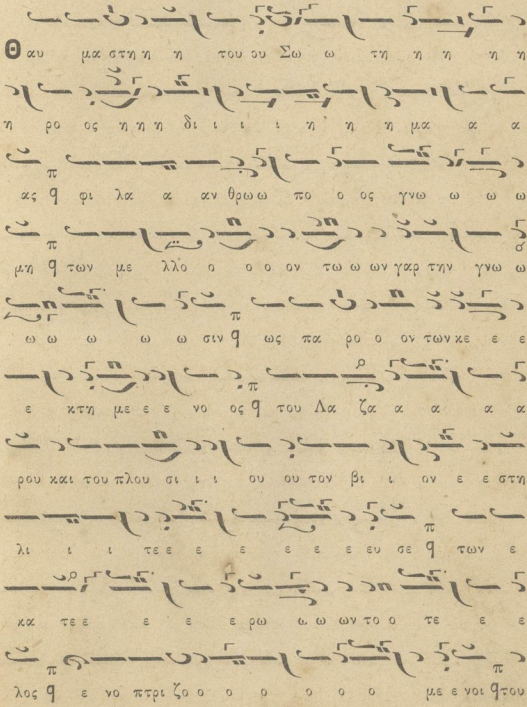 Θαυ μα στη η η του ου Σω ω τη η η η η
η ρο ος η η η δι ι ι ι η η η μα α α
ας q φι λα α αν θρω ω πο ο ος γνω ω ω ω
μη q των με λλο ο ο ο ον τω ω ων γαρ την γνω ω
ω ω ω ω ω σιν q ως πα ρο ο ον των κε ε ε
ε κτη με ε ε νο ος q του Λα ζα α α α α
ρου και του πλου σι ι ι ου ου τον βι ι ον ε ε στη
λι ι ι τε ε ε ε ε ε ε ε ευ σε q των ε
κα τε ε ε ε ε ρω ω ω ων το ο τε ε ε
λος q ε νο πτρι ζο ο ο ο ο ο ο με ε νοι q του